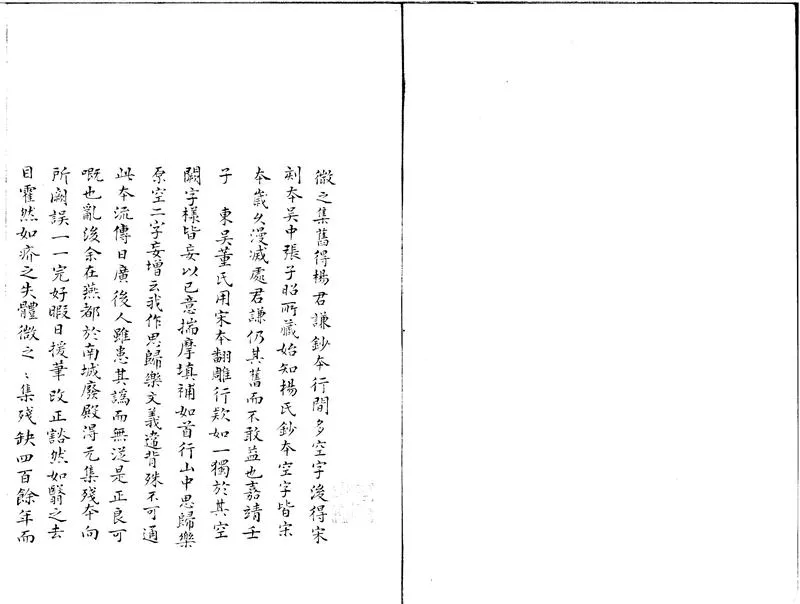 微之集舊得楊君謙鈔本行間多空字後得宋
刻本吴中張子昭所藏始知楊氏鈔本空字皆宋
本歲久漫滅處君謙仍其舊而不敢益也嘉靖壬
子　東吴董氏用宋本翻雕行欵如一獨於其空
闕字樣皆妄以己意揣摩填補如首行山中思歸樂
原空二字妄增云我作思歸樂文義違背殊不可通
此本流傳日廣後人雖患其譌而無從是正良可
嘅也亂後余在燕都於南城廢殿得元集殘本向
所闕誤一一完好暇日援筆改正豁然如翳之去
目霍然如疥之失體微之〻集殘缺四百餘年而